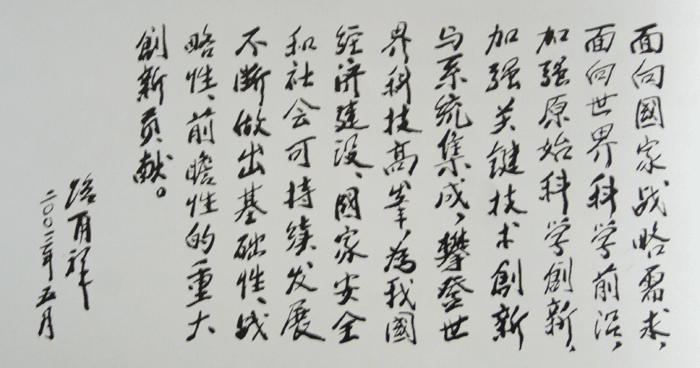 面向國家战略需求、
面向世界科学前沿，
加强原始科学创新、
加强关键技术創新
与系统集成，攀登世
界科技高峯，為我國
经济建设、國家安全
和社会可持续发展
不断做出基础性、战
略性、前瞻性的重大
創新贡献。
路甬祥
二〇〇二年五月